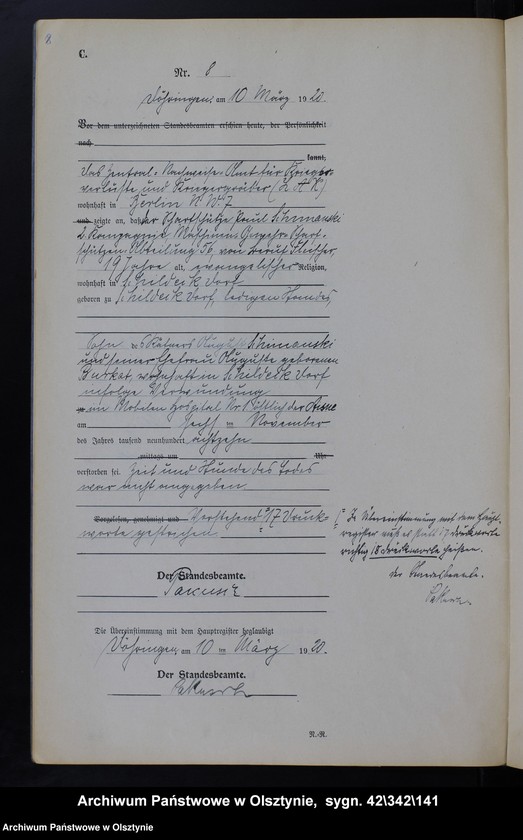 8
C.
Nr. 8
Döhringen, am 10 März 1920.
Vor dem unterzeichneten Standesbeamten erschien heute, der Persönlichkeit
nach
kannt,
das Zentral-Nachweise-Amt für Krieger-
verluste und Kriegergräber (Z.A.K)
wohnhaft in Berlin N.W. 7
und zeigte an, daß der Scharfschütze Paul Schimanski
2. Kompagnie Maschinen Gewehr Scharf-
schützen Abteilung 56 von Beruf
19 Jahre alt, evangelischer Religion,
wohnhaft in Schildeck Dorf
geboren zu Schildeck Dorf, ledigen Standes
Sohn des August Schimanski
und seiner Ehefrau Auguste geborenen
Burkat wohnhaft in Schildeck Dorf
infolge Verwundung
im Hospital Nr. 1 östlich der Aisne
am sechs im November
des Jahres tausend neunhundert achtzehn
mittags um Uhr
verstorben sei. Zeit und Stunde des Todes
war nicht angegeben
Vorgelesen, genehmigt und Vorstehend 17 Druck-
worte gestrichen
Der Standesbeamte.
Die Übereinstimmung mit dem Hauptregister beglaubigt
Döhringen, am 10 im März 1920.
Der Standesbeamte.
In Übereinstimmung mit dem Haupt-
register muß es statt 17 Druckworte
richtig 18 Druckworte heißen.
der Standesbeamte.
N.-R.
Archiwum Państwowe w Olsztynie, sygn. 42\342\141
Archiwum Państwowe w Olsztynie